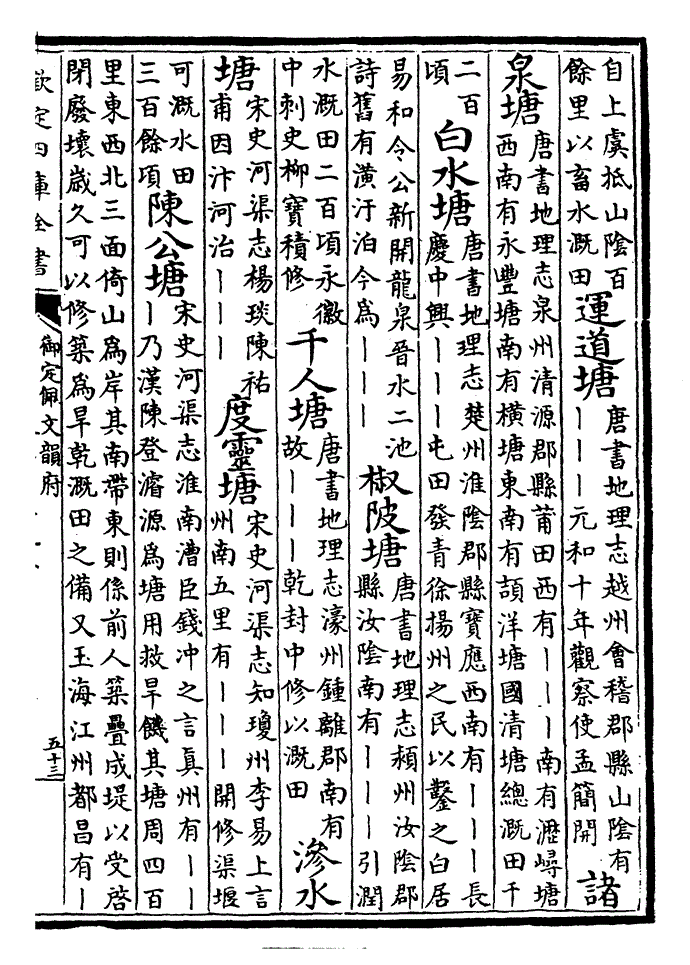 自上虞抵山陰百
餘里以畜水溉田
運道塘
唐書地理志越州會稽郡縣山陰有
丨丨丨元和十年觀察使孟簡開
諸
泉塘
唐書地理志泉州清源郡縣莆田西有丨丨丨南有瀝㟳塘
西南有永豐塘南有橫塘東南有頡洋塘國清塘總溉田千
二百
頃
白水塘
唐書地理志楚州淮陰郡縣寶應西南有丨丨丨長
慶中興丨丨丨屯田發青徐揚州之民以鑿之白居
易和令公新開龍泉晉水二池
詩舊有潢汙泊今爲丨丨丨
椒陂塘
唐書地理志潁州汝陰郡
縣汝陰南有丨丨丨引潤
水溉田二百頃永徽
中刺史柳寶積修
千人塘
唐書地理志濠州鍾離郡南有
故丨丨丨乾封中修以溉田
滲水
塘
宋史河渠志楊琰陳祐
甫因汴河治丨丨丨
度靈塘
宋史河渠志知瓊州李易上言
州南五里有丨丨丨開修渠堰
可溉水田
三百餘項
陳公塘
宋史河渠志淮南漕臣錢冲之言真州有丨丨
丨乃漢陳登濬源爲塘用救旱饑其塘周四百
里東西北三面倚山爲岸其南帶東則係前人築疊成堤以受啓
閉廢壞歲久可以修築爲旱乾溉田之備又玉海江州都昌有丨
欽定四庫全書
御定佩文韻府
五十三